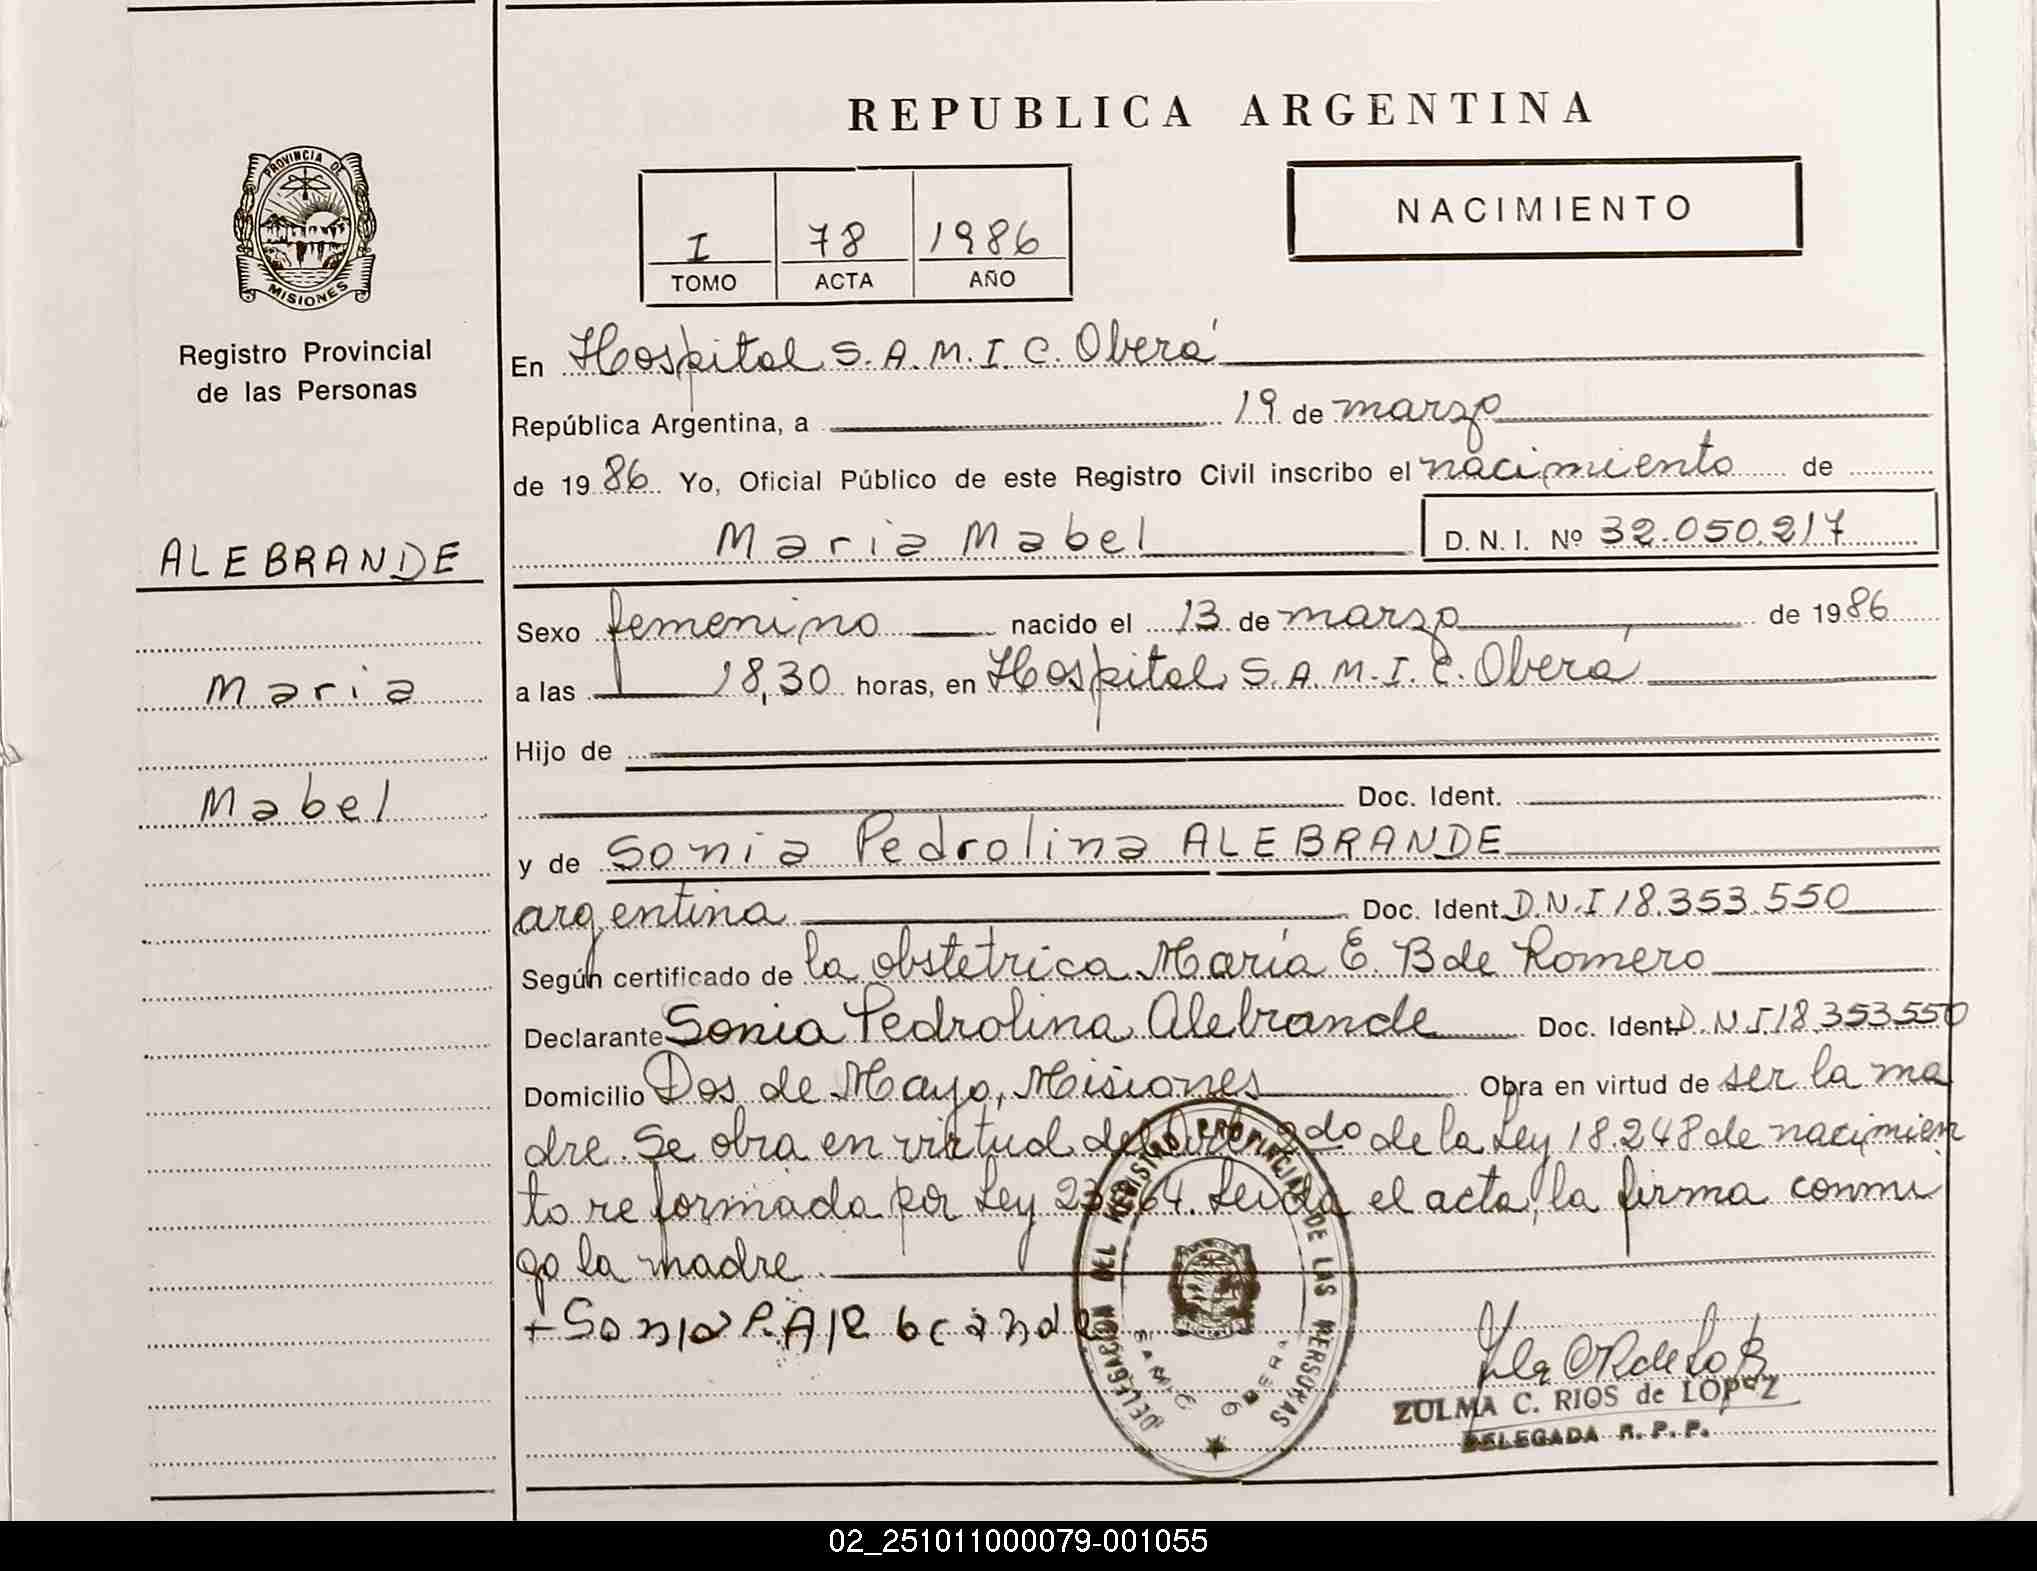 REPUBLICA ARGENTINA
PROVINCIA DE
MISIONES
Registro Provincial
de las Personas
ALEBRANDE
Maria
Mabel
I 78 1986
TOMO ACTA AÑO
NACIMIENTO
En Hospital S.A.M.I.C. Oberá
República Argentina, a 19 de marzo
de 1986 Yo, Oficial Público de este Registro Civil inscribo el nacimiento de
Maria Mabel D.N.I. Nº 32.050.217
Sexo femenino nacido el 13 de marzo de 1986
a las 18,30 horas, en Hospital S.A.M.I.C. Oberá
Hijo de
Doc. Ident.
y de Sonia Pedrolina ALEBRANDE
argentina Doc. Ident. D.N.I 18.353.550
Según certificado de la obstetrica María E. B de Romero
Declarante Sonia Pedrolina Alebrande Doc. Ident. D.N.I 18.353.550
Domicilio Dos de Mayo, Misiones Obra en virtud de ser la ma
dre. Se obra en virtud del 2do de la Ley 18.248 de nacimien
to reformada por Ley Leida el acta, la firma conmi
go la madre
+ Sonia P. Alebrande
DELEGACION DEL REGISTRO PROVINCIAL DE LAS PERSONAS
SAMIC OBERA
ZULMA C. RIOS de LOPEZ
DELEGADA R.P.P.
02_251011000079-001055